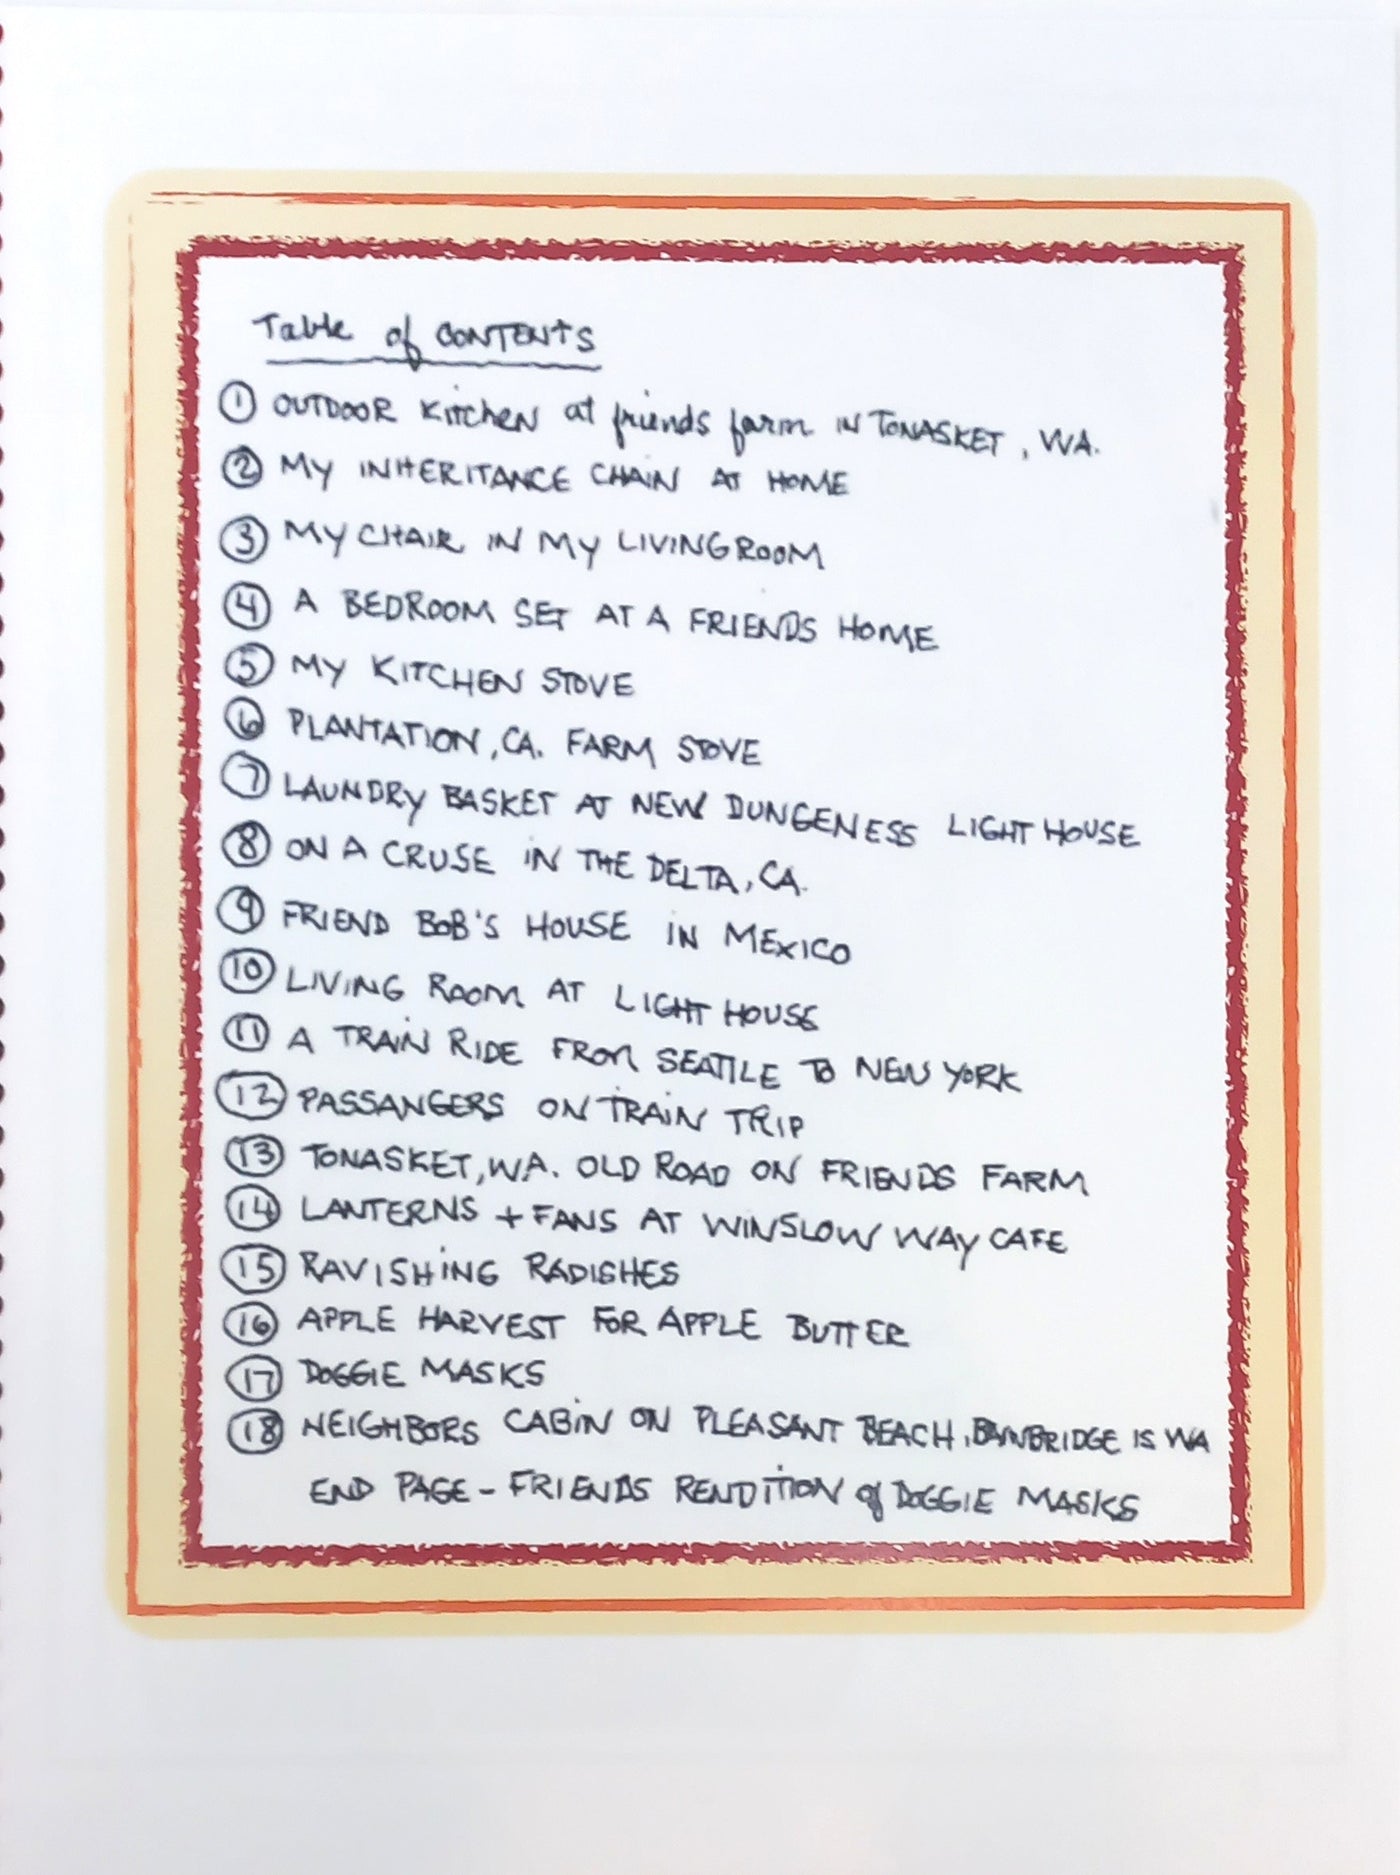 Table of CONTENTS
1 OUTDOOR Kitchen at friends farm IN TONASKET, WA.
2 MY INHERITANCE CHAIN AT HOME
3 MY CHAIR IN MY LIVINGROOM
4 A BEDROOM SET AT A FRIENDS HOME
5 MY KITCHEN STOVE
6 PLANTATION, CA. FARM STOVE
7 LAUNDRY BASKET AT NEW DUNGENESS LIGHT HOUSE
8 ON A CRUSE IN THE DELTA, CA.
9 FRIEND BOB'S HOUSE IN MEXICO
10 LIVING ROOM AT LIGHT HOUSE
11 A TRAIN RIDE FROM SEATTLE TO NEW YORK
12 PASSANGERS ON TRAIN TRIP
13 TONASKET, WA. OLD ROAD ON FRIENDS FARM
14 LANTERNS + FANS AT WINSLOW WAY CAFE
15 RAVISHING RADISHES
16 APPLE HARVEST FOR APPLE BUTTER
17 DOGGIE MASKS
18 NEIGHBORS CABIN ON PLEASANT BEACH, BAINBRIDGE IS WA
END PAGE - FRIENDS RENDITION of DOGGIE MASKS